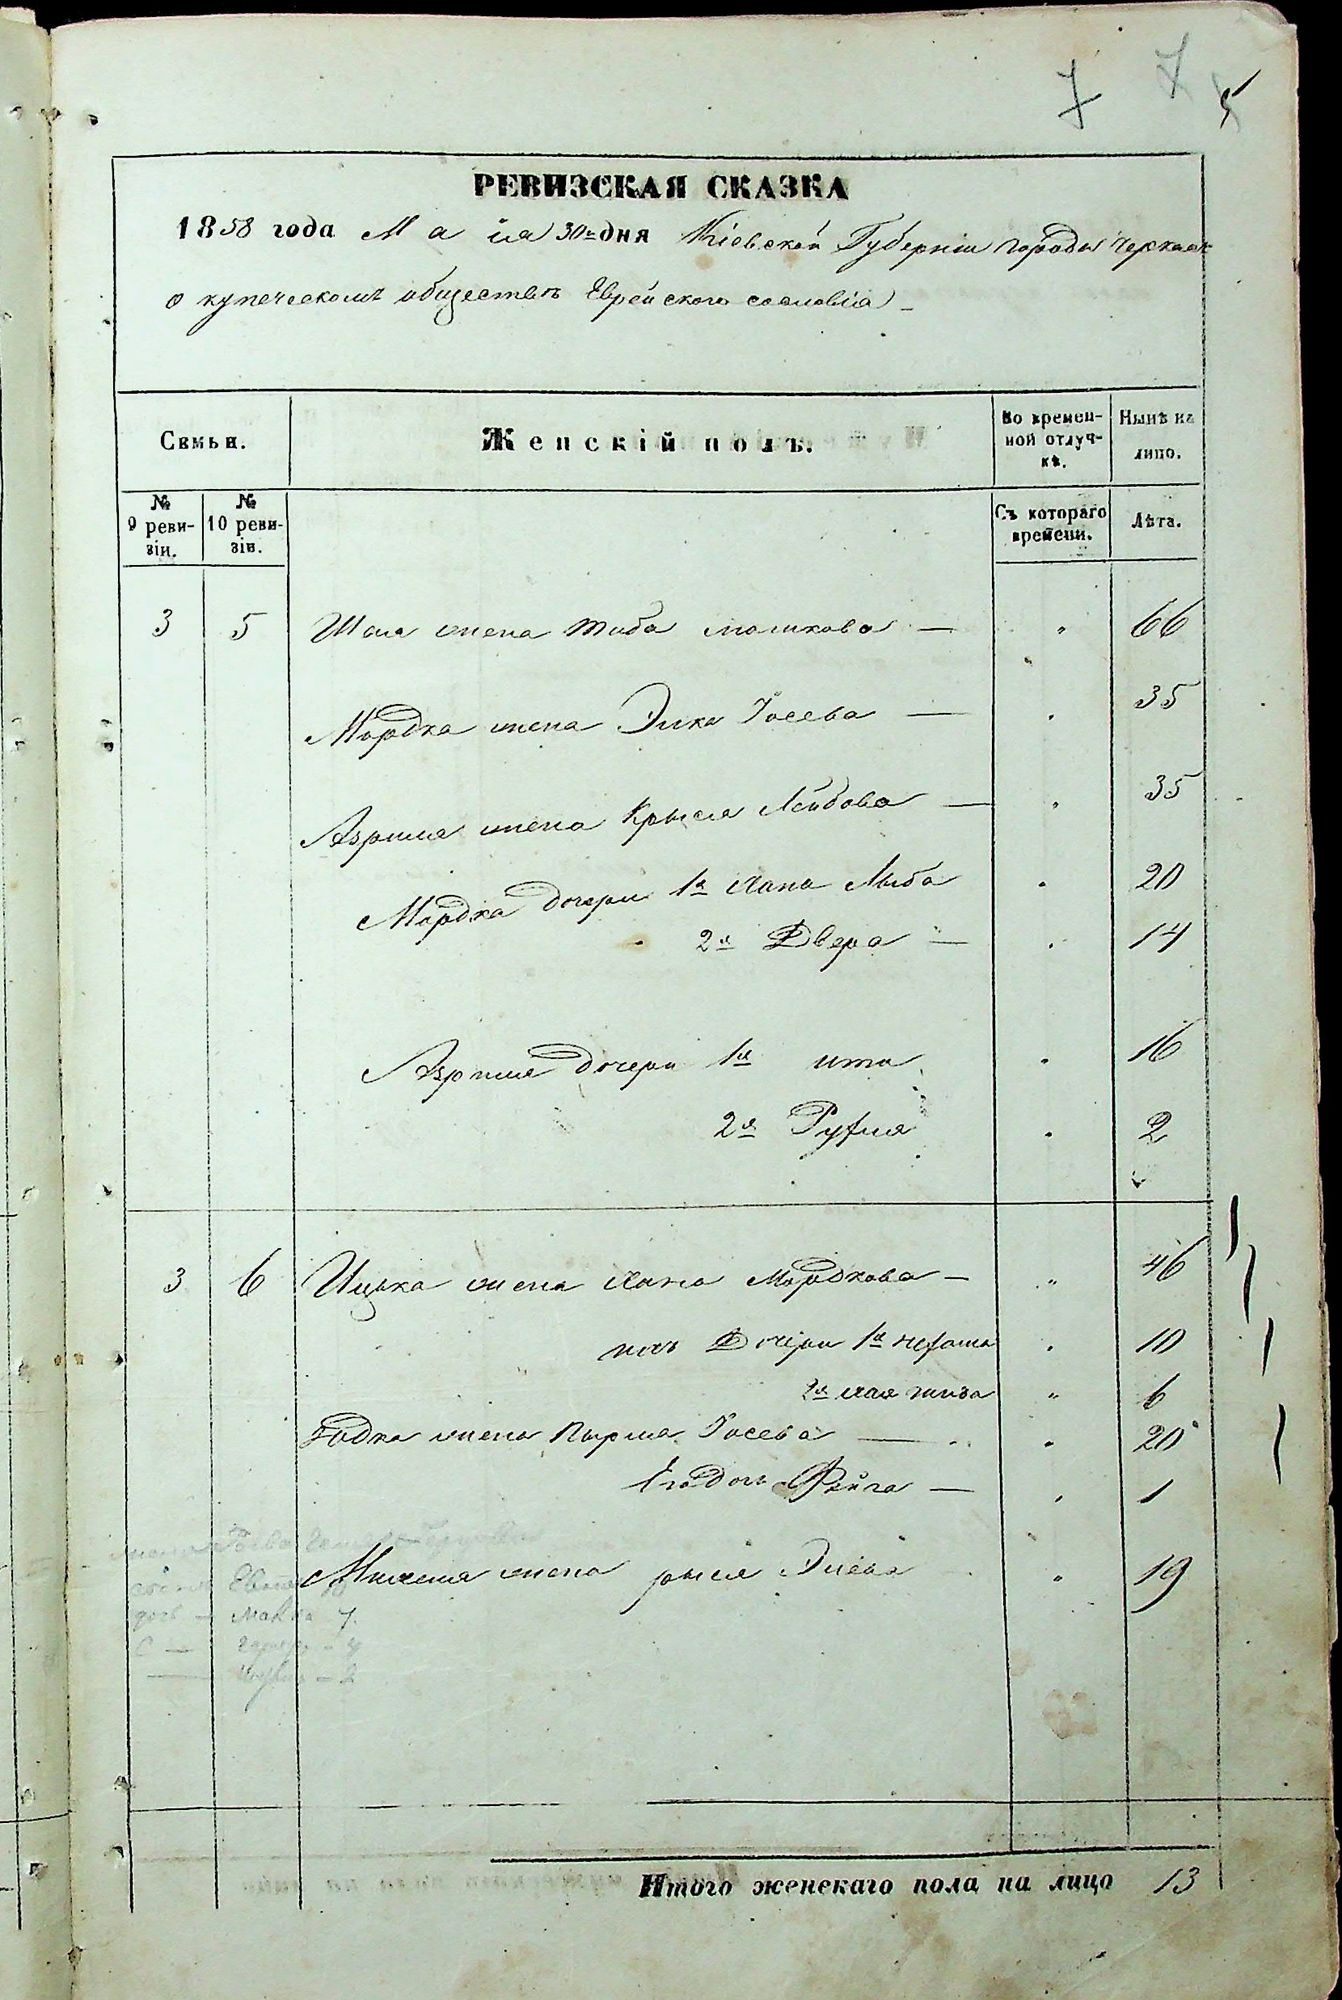 7 7
5
РЕВИЗСКАЯ СКАЗКА
1858 года Мая 30го дня Кіевской Губерніи города Черкасъ
о купеческомъ обществѣ Еврейскаго сословія
Семьи. Женскій полъ. Во времен-ной отлуч-кѣ. Нынѣ на лицо.
№ 9 реви-зіи. № 10 реви-зіи. Съ котораго времени. Лѣта.
3 5 Шая жена Тиба 66
Мордка жена Элка Іосева 35
Азриля жена Крыся Лейбова 35
Мордка дочери 1я Хана Лыба 20
2я Двера 14
Азриля дочери 1я Ита 16
2я Рухля 2
3 6 Ицька жена Хана Мордкова 46
ихъ Дочери 1я Нехама 10
2я Хая 6
жена Перля Іосева 20
Его дочь Фейга 1
жена рыся 19
Итого женскаго пола на лицо 13